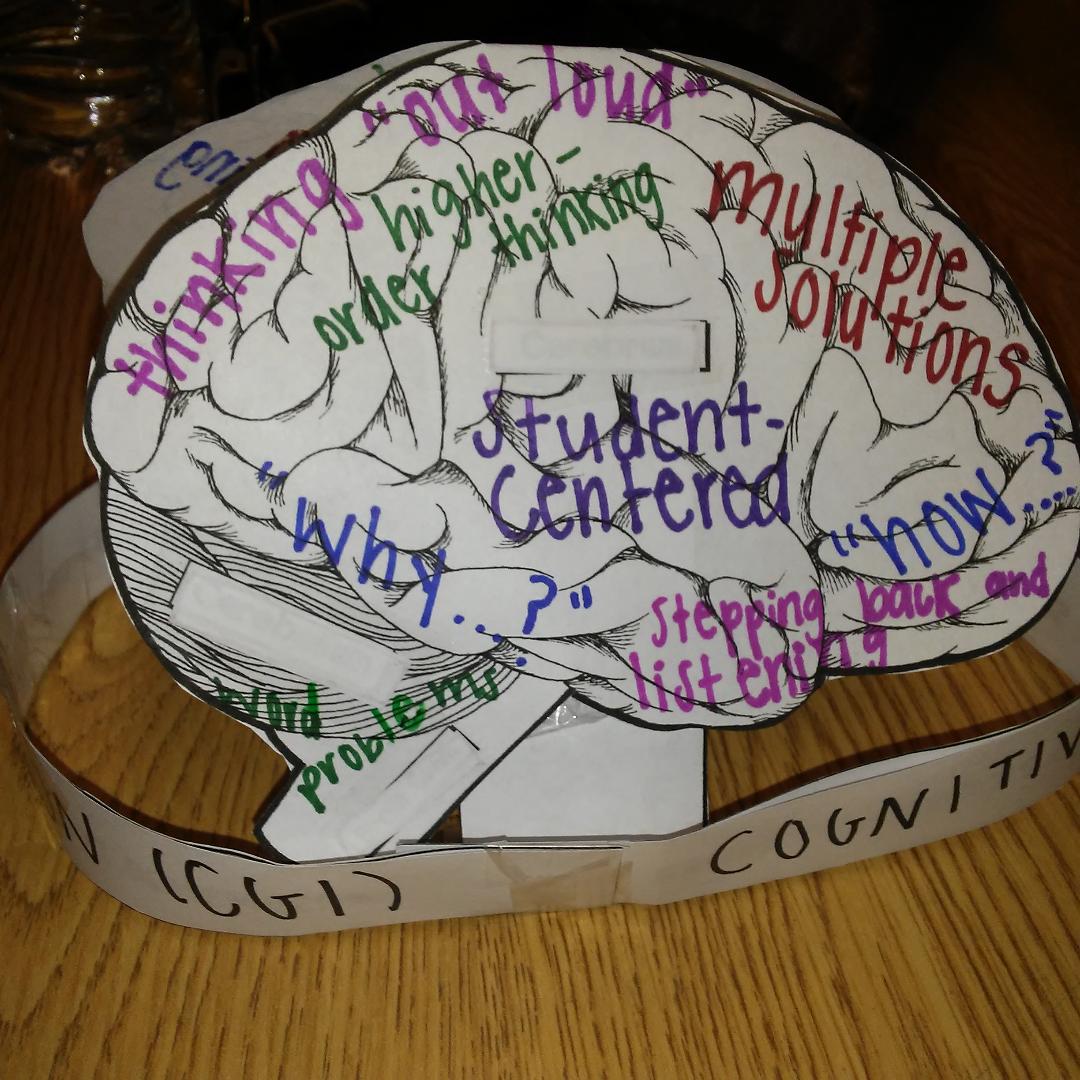 "out loud"
thinking
higher-
order thinking
multiple
solutions
Student-
Centered
"Why...?"
"how....?"
stepping back and
listening
word
problems
N (CGI)
COGNITIV